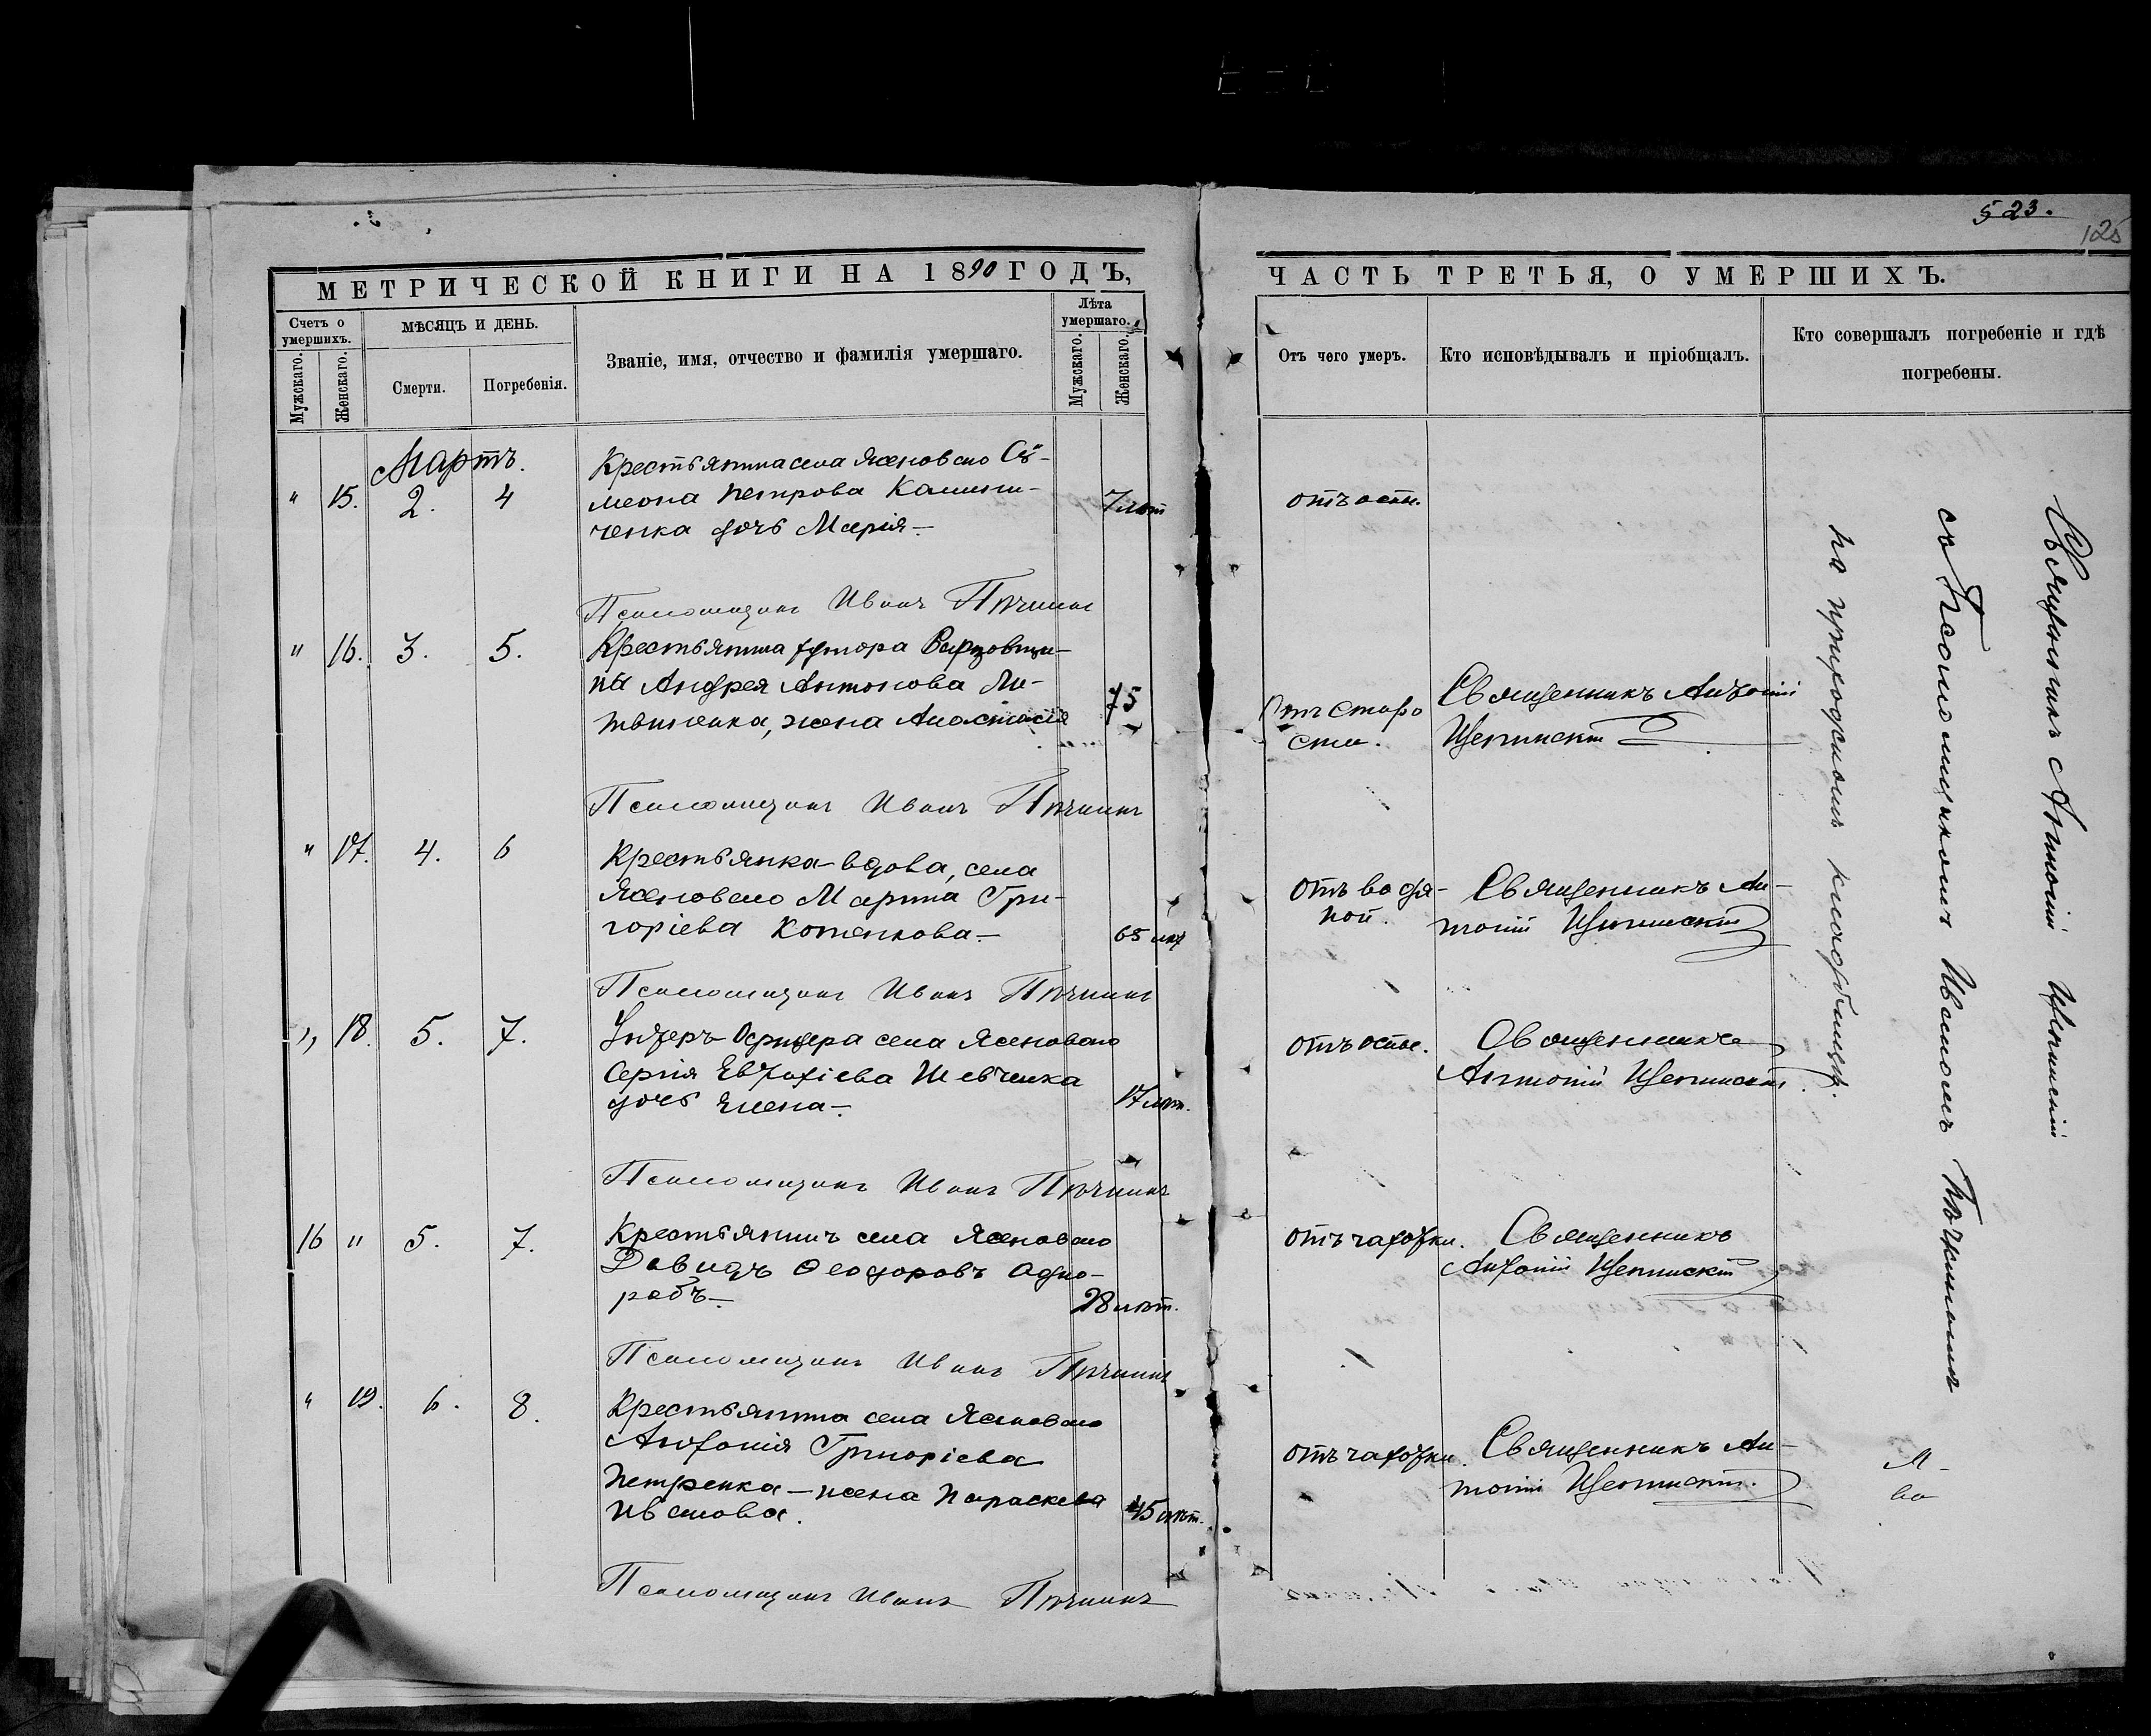 523.
125
МЕТРИЧЕСКОЙ КНИГИ НА 1890 ГОДЪ,
Счетъ о умершихъ.
Мужскаго.
Женскаго.
МѢСЯЦЪ И ДЕНЬ.
Смерти.
Погребенія.
Званіе, имя, отчество и фамилія умершаго.
Лѣта умершаго.
Мужскаго.
Женскаго.
ЧАСТЬ ТРЕТЬЯ, О УМЕРШИХЪ.
Отъ чего умеръ.
Кто исповѣдывалъ и пріобщалъ.
Кто совершалъ погребеніе и гдѣ погребены.
Мартъ.
" 15. 2. 4
Крестьянина села Ясеноваго Сѵ-
меона Петрова
ченка дочь Марія.—
7 лѣт
отъ оспы.
Псаломщикъ Иванъ Пчишъ
" 16. 3. 5.
Крестьянина хутора
ны Андрея Антонова Ли-
твиненка, жена Анастасія
75
Отъ старо
сти.
Священникъ Антоній
Щепинскій
Псаломщикъ Иванъ
" 17. 4. 6
Крестьянка-вдова, села
Ясеноваго Марина Гри-
горіева Котенкова.—
65 лѣт
отъ водя-
ной.
Священникъ Ан-
тоній Щепинскій
Псаломщикъ Иванъ
" 18. 5. 7.
Унтеръ-Офицера села Ясеноваго
Сергія Евтихіева Шевченка
дочь Елена.—
17 лѣт.
отъ оспы.
Священникъ
Антоній Щепинскій
Псаломщикъ Иванъ
16 " 5. 7.
Крестьянинъ села Ясеноваго
Давидъ Ѳеодоровъ Одно-
рабъ.—
28 лѣт.
отъ чахотки.
Священникъ
Антоній Щепинскій
Псаломщикъ Иванъ
" 19. 6. 8.
Крестьянина села Ясеноваго
Антонія Григоріева
Петренка — жена Параскева
Иванова.
45 лѣт.
отъ чахотки.
Священникъ Ан-
тоній Щепинскій.
Псаломщикъ Иванъ
Священникъ Антоній Щепинскій
съ Псаломщикомъ Иваномъ
на приходскомъ кладбищѣ.